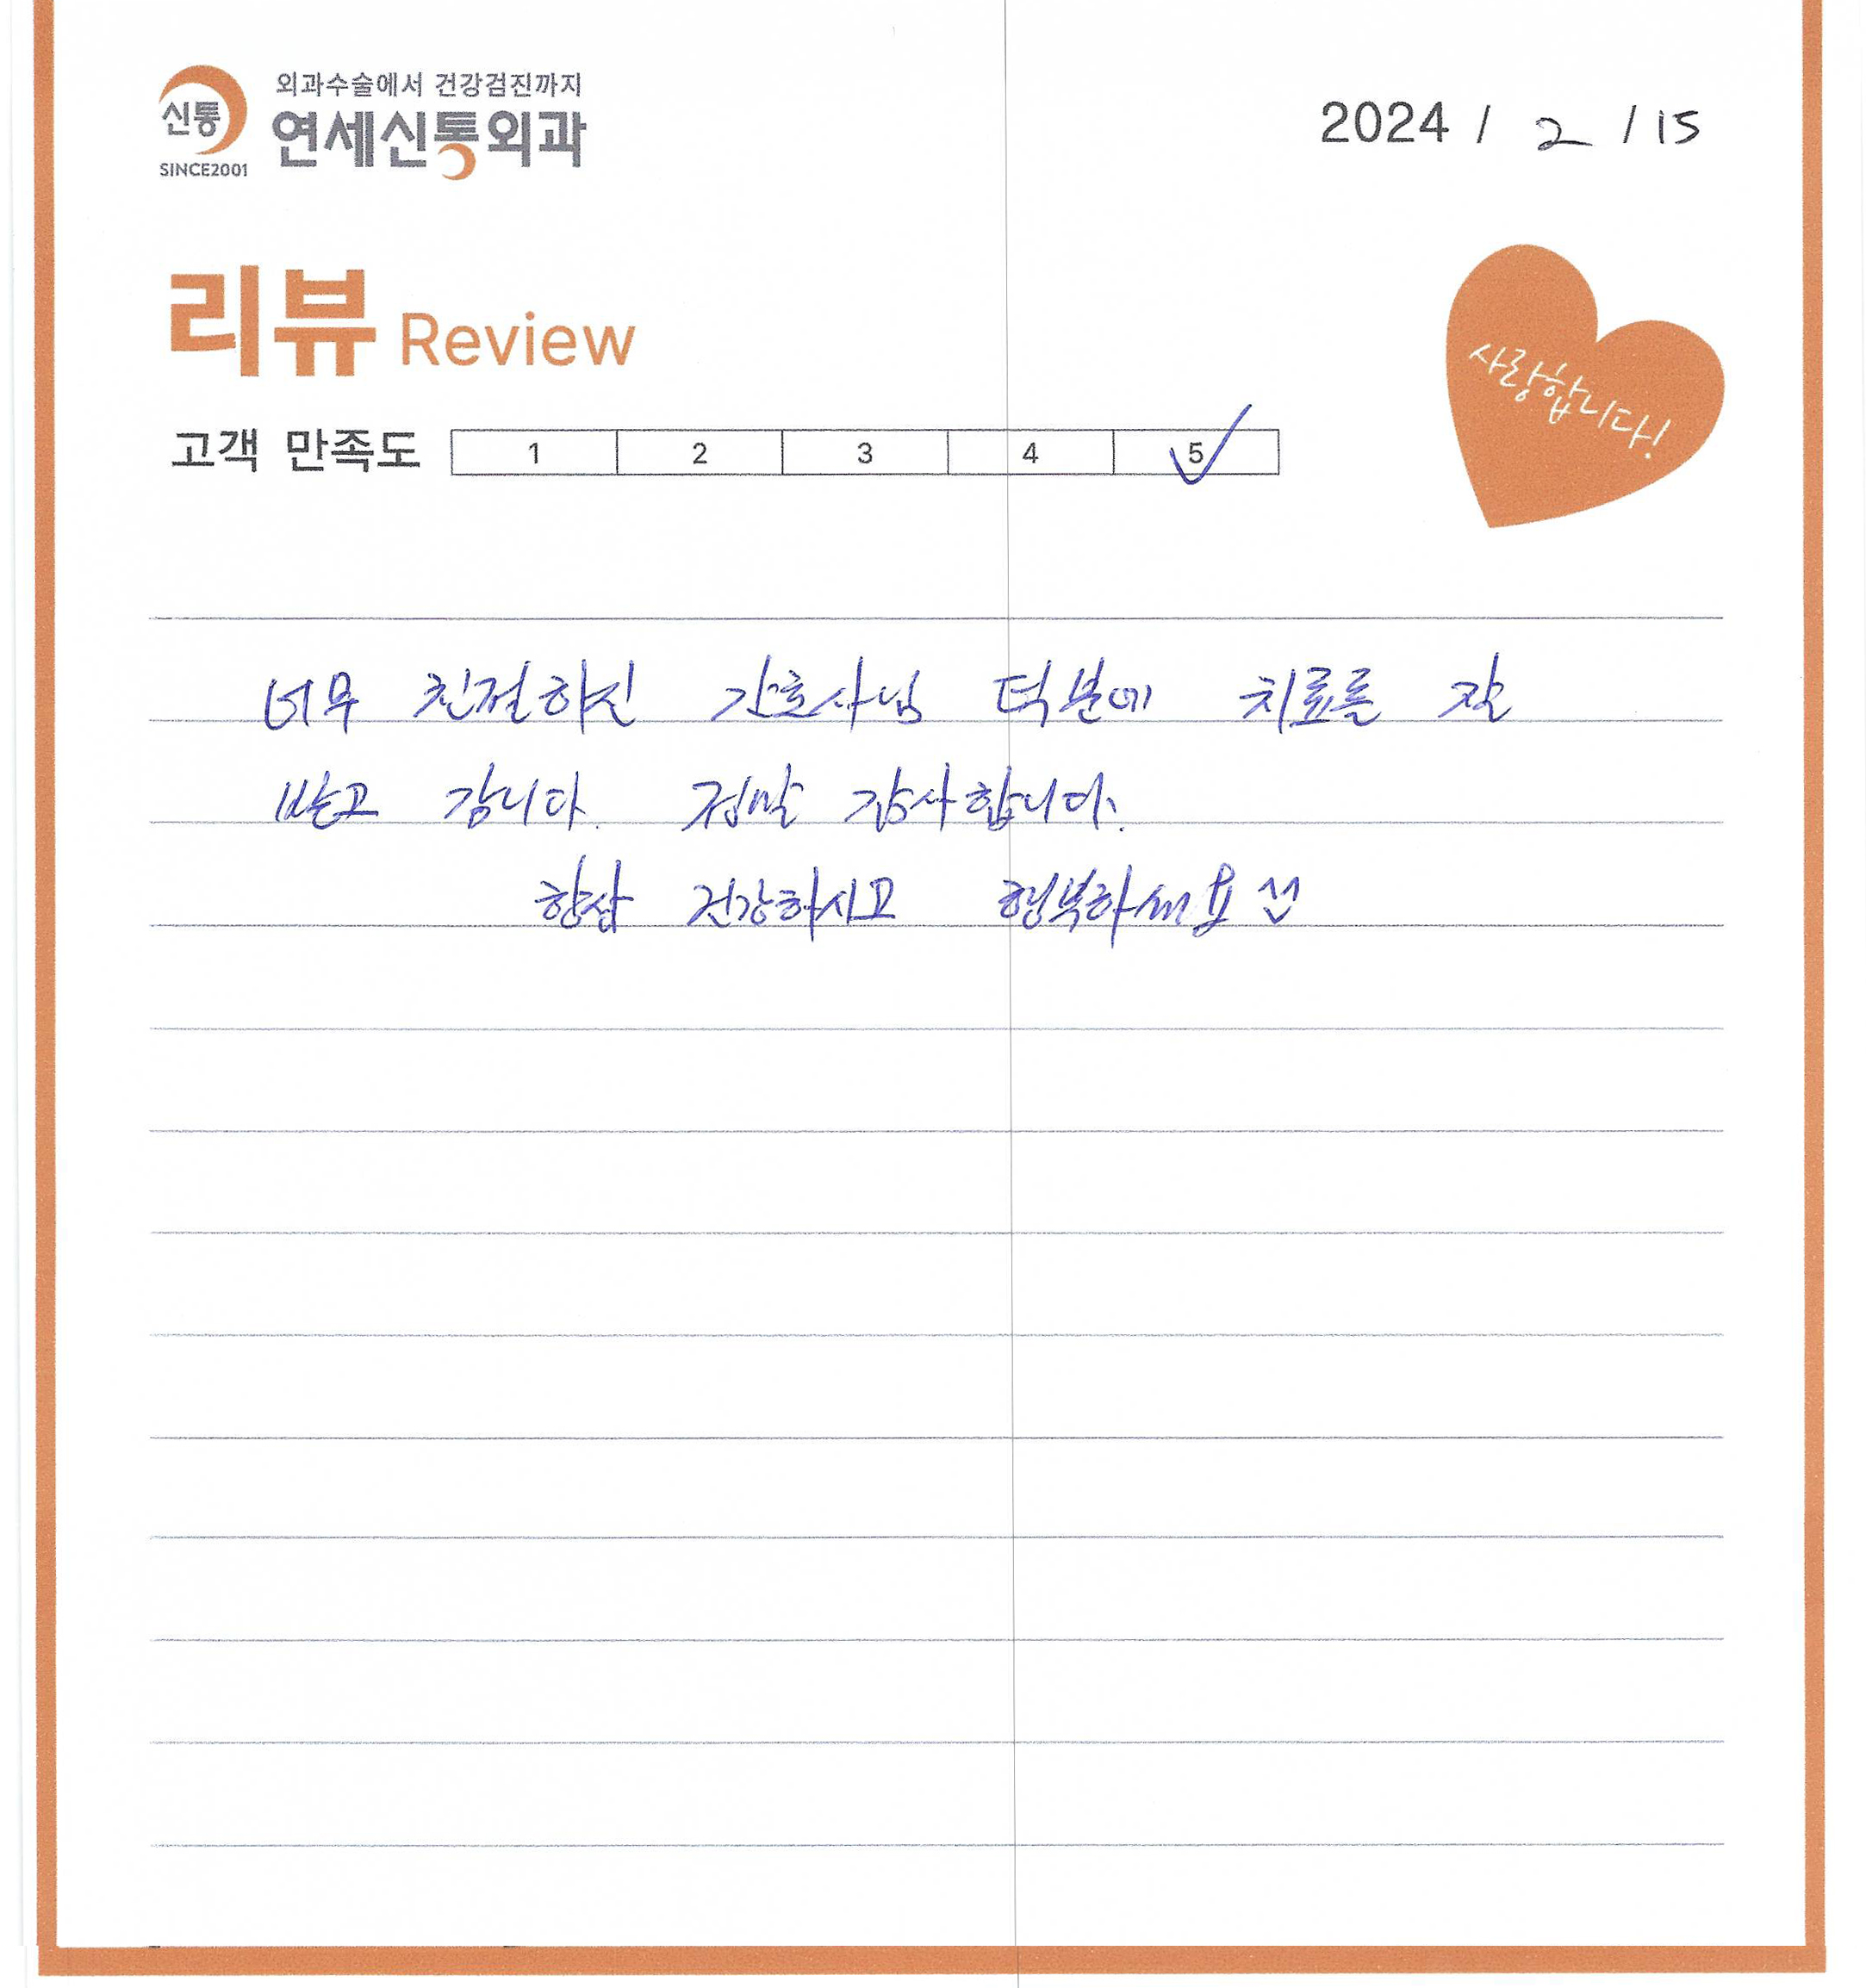 신통
SINCE2001
외과수술에서 건강검진까지
연세신통외과
2024 / 2 / 15
리뷰 Review
사랑합니다!
고객 만족도 1 2 3 4 5
너무 친절하신 간호사님 덕분에 치료를 잘
받고 갑니다. 정말 감사합니다.
항상 건강하시고 행복하세요